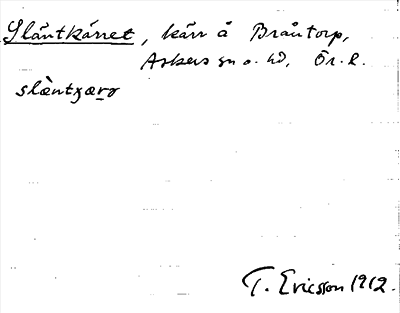 Släntkärret, kärr å Bråntorp,
Askers sn o. hd, Ör. l.
slæ̀ntɣær̲o
T. Ericsson 1912.